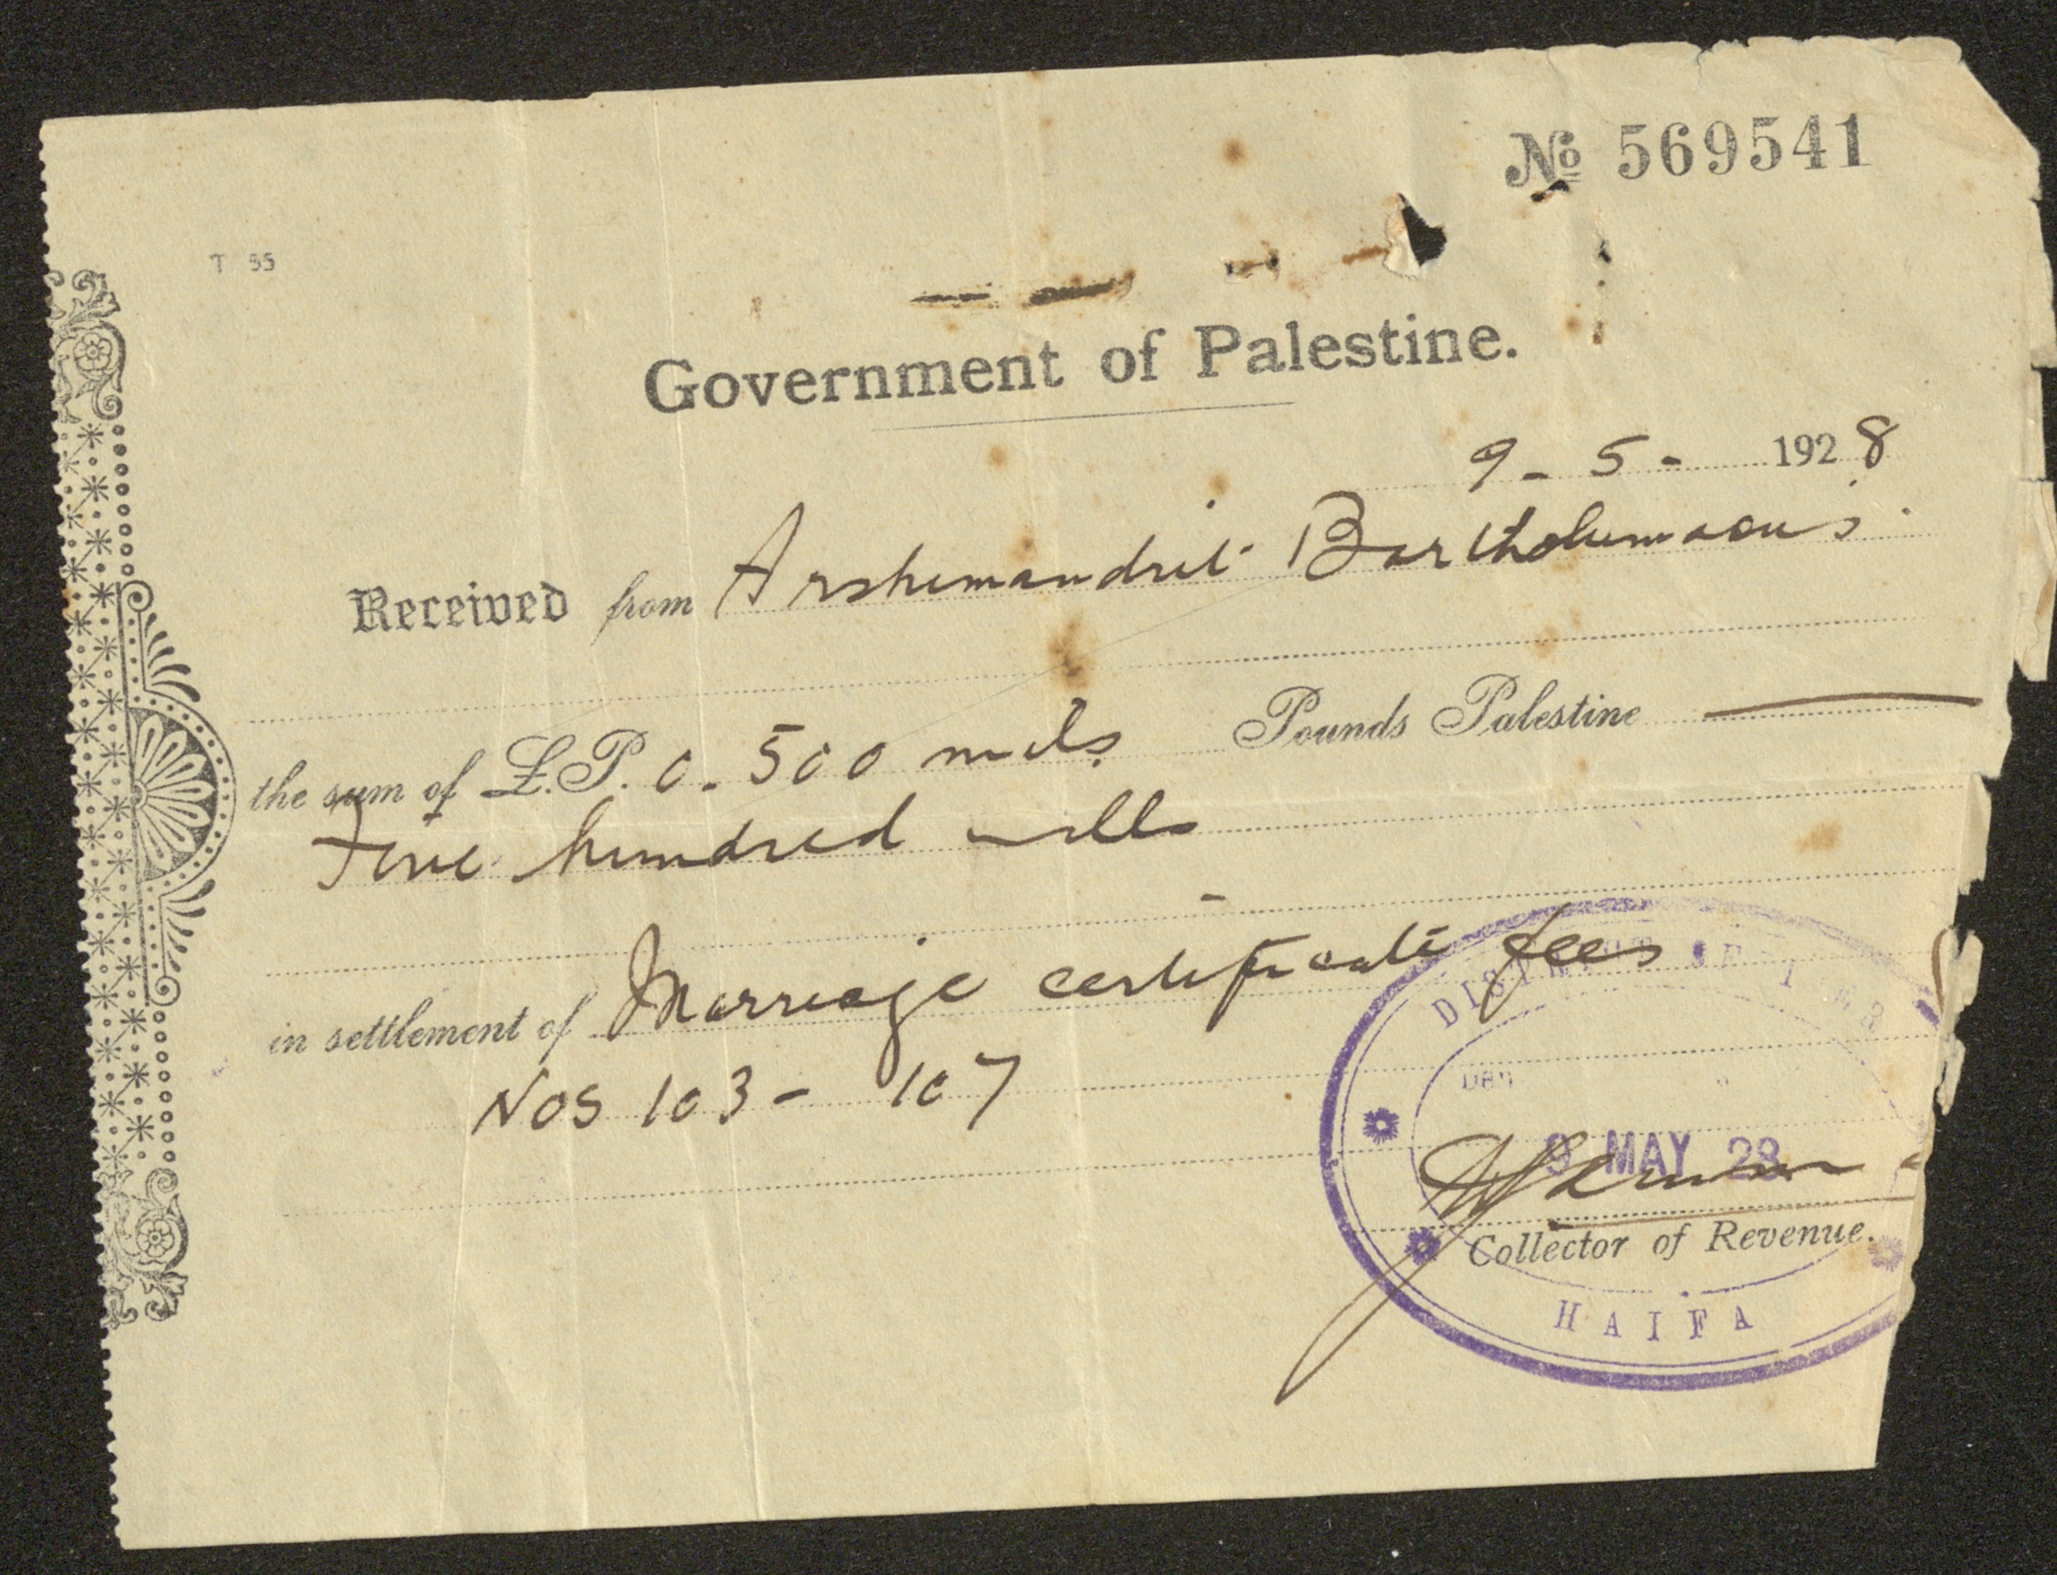 No 569541
T. 55
Government of Palestine.
9-5- 1928
Received from Arshimandrit Bartholumaous.
the sum of £.P. 0.500 mils Pounds Palestine
Five hundred mills
in settlement of Marriage certificate fees
Nos 103 - 107
DISTRICT
9 MAY 28
Collector of Revenue.
HAIFA